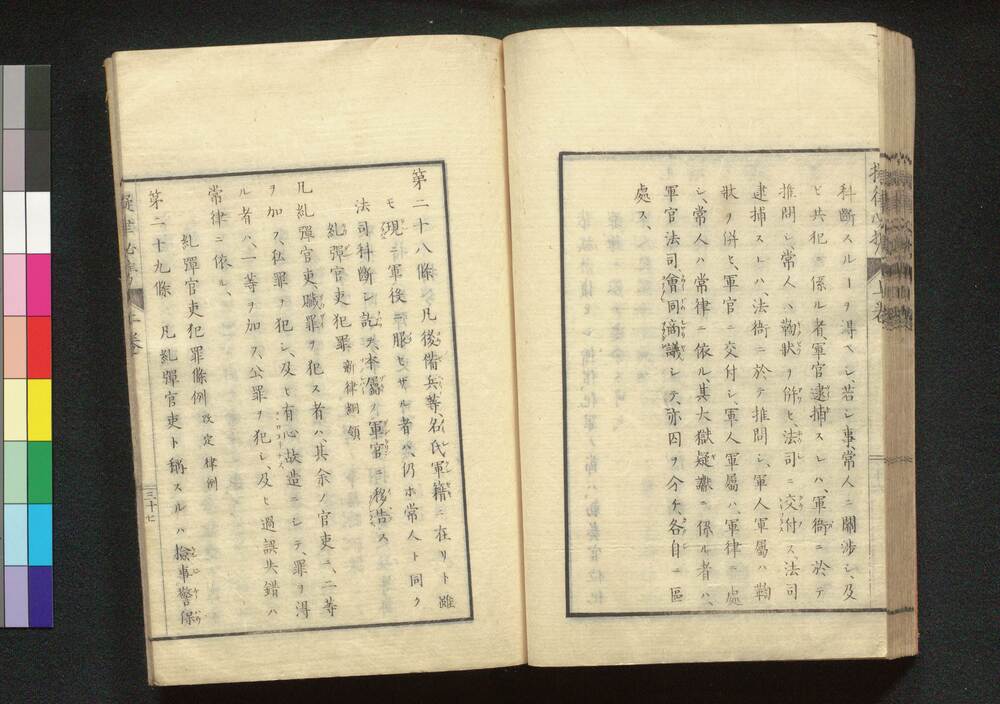 科斷スルヿヲ得ヘシ、若シ事、常人ニ關涉シ、及
ヒ共犯ニ係ル者、軍官逮捕スレハ、軍衙ニ於テ
推問シ、常人ハ鞫狀ヲ併セ、法司ニ交付ス、法司
逮捕スレハ、法衙ニ於テ推問シ、軍人軍屬ハ鞫
狀ヲ併セ、軍官ニ交付シ、軍人軍屬ハ、軍律ニ處
シ、常人ハ常律ニ依ル、其大獄疑讞ニ係ル者ハ、
軍官法司、會同商議シテ、亦囚ヲ分ケ、各自ニ區
處ス、
第二十八條 凡後備兵等、名氏軍籍ニ在リト雖
モ、現ニ軍役ニ服セサル者ハ、仍ホ常人ト同ク
法司科斷シ訖テ、本屬ノ軍官ニ移告ス
糺彈官吏犯罪 新律綱領
凡糺彈官吏、贓罪ヲ犯ス者ハ、其余ノ官吏ニ、二等
ヲ加ス、私罪ヲ犯シ、及ヒ有心故造ニシテ、罪ヲ得
ル者ハ、一等ヲ加ス、公罪ヲ犯シ、及ヒ過誤失錯ハ
常律ニ依ル、
糺彈官吏犯罪條例 改定律例
第二十九條 凡糺彈官吏ト稱スルハ、檢事警保
三十七